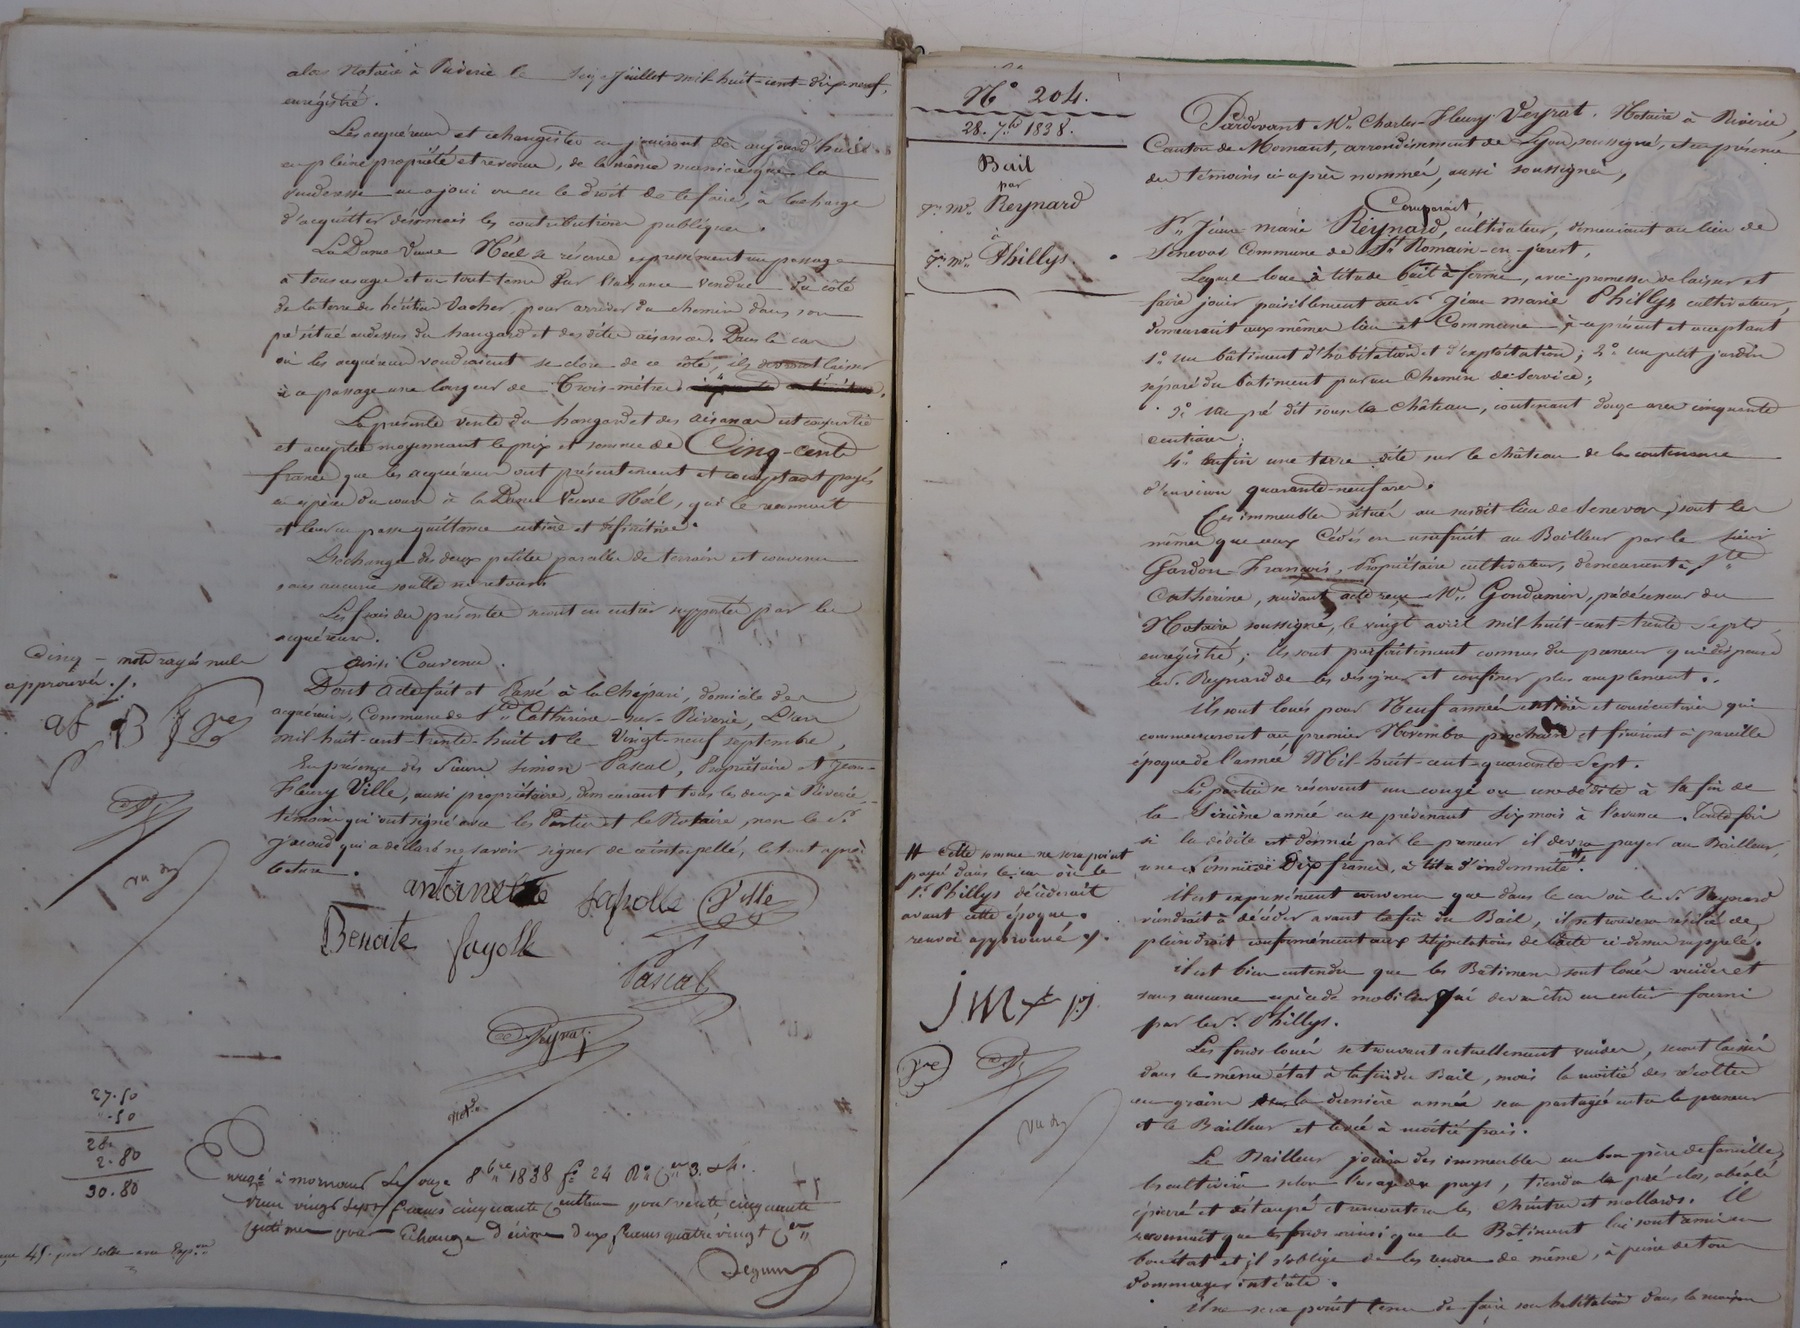 alors Notaire à Riverie le seize Juillet mil-huit-cent-dix-neuf,
enregistré.
Les acquéreurs et échangistes en jouiront dès aujourd'hui
en pleine propriété et revenus, de la même manière que la
venderesse en a joui ou eu le droit de le faire, à la charge
d'acquitter désormais les contributions publiques.
La Dame Veuve Noël se réserve expressément un passage
à tous usages et en tout tems sur l'aisance vendue du côté
de la terre des héritiers Vacher, pour arriver du chemin dans son
pré situé audessus du hangard et des dites aisances. Dans le cas
où les acquéreurs voudraient se clore de ce côté, ils devront laisser
à ce passage une largeur de Trois mètres
La présente vente du hangard et des aisances est consentie
et acceptée moyennant le prix et somme de Cinq-cents
francs que les acquéreurs ont présentement et comptant payés
en espèces du cours à la Dame Veuve Noël, qui le reconnait
et leur en passe quittance entière et définitive.
L'échange des deux petites parcelles de terrain est convenu
sans aucune soulte ni retour.
Les frais des présentes seront en entier supportés par les
acquéreurs.
Ainsi Convenu.
Dont acte fait et Passé à la Chaparie, domicile des
acquéreurs, Commune de Ste Catherine-sur-Riverie, L'an
mil-huit-cent-trente-huit et le Vingt-neuf septembre,
En présence des Sieurs Simon Pascal, Propriétaire et Jean-
Fleury Ville, aussi propriétaire, demeurant tous les deux à Riverie,
témoins qui ont signé avec les Parties et le Notaire, non le Sr
qui a déclaré ne savoir signer de ce interpellé, le tout après
lecture.
Cinq mots rayés nuls
approuvés.
af B f
antoinette fayolle Ville
Benoite fayolle
Pascal
Veyrat
Notre
27.50
.50
28.
2.80
30.80
Enregé à mornant Le onze 8bre 1838 fo 24 Ro Ces 3. & 4.
Reçu vingt sept francs cinquante Centimes pour vente cinquante
centimes pour Echange Décime Deux francs quatre vingt Ces
No 204.
28. 7bre 1838.
Bail
par
Jn Mie Reynard
à
Jn Mie Phillys.
Pardevant Me Charles-Fleury Veyrat, Notaire à Riverie,
Canton de Mornant, arrondissement de Lyon, soussigné, et en présence
des témoins ci-après nommés, aussi soussignés,
Comparait
Sr Jean-marie Reynard, cultivateur, demeurant au lieu de
Senevas Commune de St Romain-en-jarest,
Lequel loue à titre de bail à ferme, avec promesse de laisser et
faire jouir paisiblement au Sr Jean marie Phillys cultivateur,
demeurant aux mêmes lieu et Commune, à ce présent et acceptant
1o un bâtiment d'habitation et d'exploitation; 2o un petit jardin
séparé du bâtiment par un Chemin de service;
3o un pré dit sous le château, contenant douze ares cinquante
centiares;
4o Enfin une terre dite sur le château de la contenance
d'environ quarante-neuf ares.
Ces immeubles situés au susdit lieu de Senevas, sont les
mêmes que ceux Cédés en usufruit au Bailleur par le sieur
Gardon François, Propriétaire cultivateur, demeurant à Ste
Catherine, suivant acte reçu Me Gondamin, prédécesseur du
Notaire soussigné, le vingt avril mil-huit-cent-trente-sept,
enregistré; ils sont parfaitement connus du preneur qui dispense
le Sr Reynard de les désigner et confiner plus amplement.
Ils sont loués pour Neuf années entières et consécutives qui
commenceront au premier Novembre prochain et finiront à pareille
époque de l'année Mil-huit-cent-quarante-sept.
Les parties se réservent un congé ou une dédite à la fin de
la Sixième année en se prévenant six mois à l'avance. Toutefois
si la dédite est donnée par le preneur il devra payer au Bailleur,
une somme de Dix francs, à titre d'indemnité.#
# Cette somme ne sera point
payée dans le cas où le
Sr Phillys décèderait
avant cette époque.
renvoi approuvé
JM P
Il est expressément convenu que dans le cas où le Sr Reynard
viendrait à décéder avant la fin du Bail, il se trouvera résilié de
plein droit conformément aux stipulations de l'acte ci-dessus rappelé.
Il est bien entendu que les Bâtimens sont loués vuides et
sans aucune espèce de mobilier qui devra être en entier fourni
par le Sr Phillys.
Les fonds loués se trouvant actuellement vuides, seront laissés
dans le même état à la fin du Bail, mais la moitié des récoltes
en grains de la dernière année sera partagée entre le preneur
et le Bailleur et levée à moitié frais.
Le Bailleur jouira des immeubles en bon père de famille,
les cultivera selon l'usage du pays, tiendra le pré clos,
épierré et détaupé et remontera les chintres et mollards. Il
reconnait que le fonds ainsi que le Bâtiment lui sont remis en
bon état et il s'oblige de les rendre de même, à peine de tous
dommages intérêts.
Il ne sera point tenu de faire son habitation dans la maison